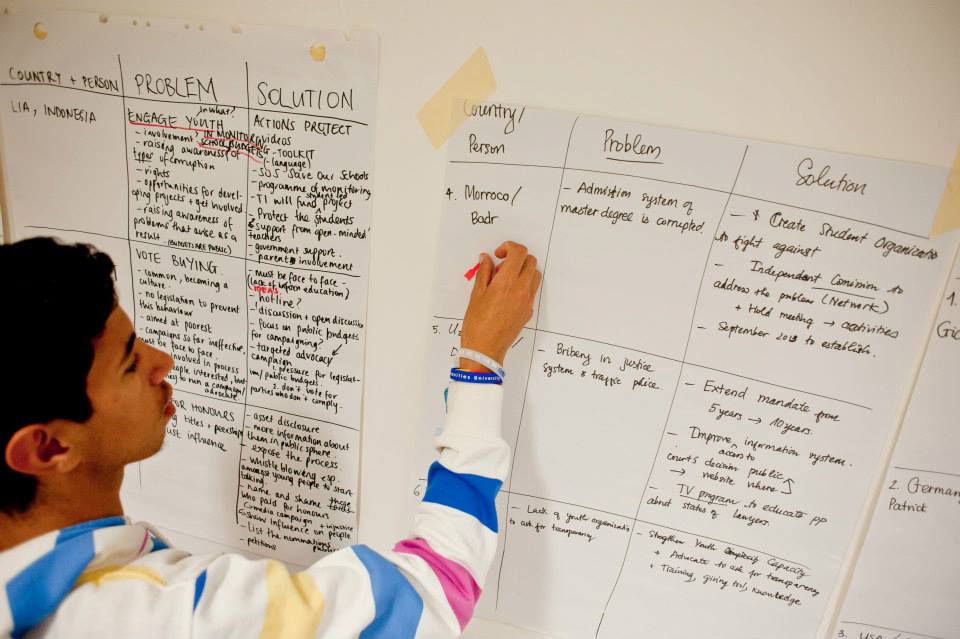 COUNTRY + PERSON
PROBLEM
SOLUTION
LIA, INDONESIA
in what?
ENGAGE YOUTH
IN MONITORING
SCHOOL BUDGETS
- involvement
- raising awareness of
types of corruption
- rights
- opportunities for devel-
oping projects + get involved
- raising awareness of
problems that arise as a
result. (BUDGETS ARE PUBLIC)
ACTIONS PROJECT
videos
- TOOLKIT
(-language)
- SOS Save Our Schools
- programme of monitoring
student led
- TI will fund project
- Protect the students
support from open-minded
teachers
- government support.
- parent involvement
VOTE BUYING
- common, becoming a
culture.
- no legislation to prevent
this behaviour
- aimed at poorest
- campaigns so far ineffective,
must be face to face.
involved in process
interested, but
to run a campaign/
advocate
(must be face to face -
(lack of education)
IDEAS
- hotline?
- discussion + open discussion
- focus on public budgets
for campaigning?
- targeted advocacy
campaign
1. pressure for legislat-
ion/public budgets.
2. don't vote for
parties who don't comply.
FOR HONOURS
titles + peerships
influence
- asset disclosure
- more information about
them in public sphere.
- expose the process.
- Whistleblowing esp.
amongst young people to start
talking.
- name and shame those
who paid for honours
media campaign
influence on people
- List the nominations
- petitions
Country/
Person
Problem
Solution
4. Morroco/
Badr
- Admistion system of
master degree is corrupted.
- Create Student Organizatio
to fight against
- Independent Comission to
address the problem (Network)
+ Hold meeting → activities
- September 2013 to establish.
5.
- Bribery in justice
system & traffic police.
- Extend mandate from
5 years → 10 years.
- Improve information system.
access to
courts decision public
→ website where
- TV program to educate pp
about status of lawyers.
6
- Lack of youth organisatio
to ask for transparency
- Strengthen Youth Capacity
+ Advocate to ask for transparency
+ Training, giving knowledge
1.
2. German
Patrick
3. USA/